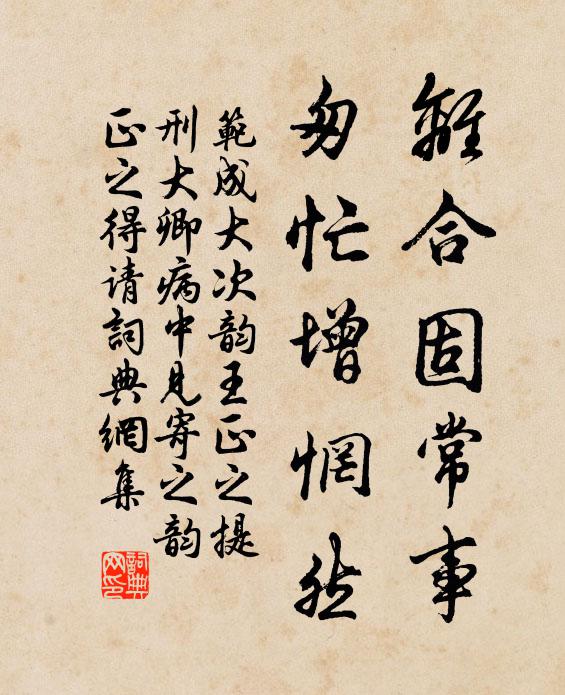 離合固常事
匆忙增惘然
範成大次韵王正之提
刑大卿病中見寄之韵
正之得请詞典網集
詞典
网印